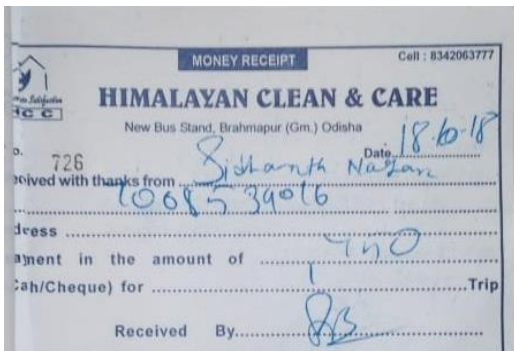 MONEY RECEIPT
Cell : 8342063777
HCC
HIMALAYAN CLEAN & CARE
New Bus Stand, Brahmapur (Gm.) Odisha
o. 726
Date 18-10-18
eived with thanks from Sidhanth
dress
ayment in the amount of
Cah/Cheque) for 1 Trip
Received By